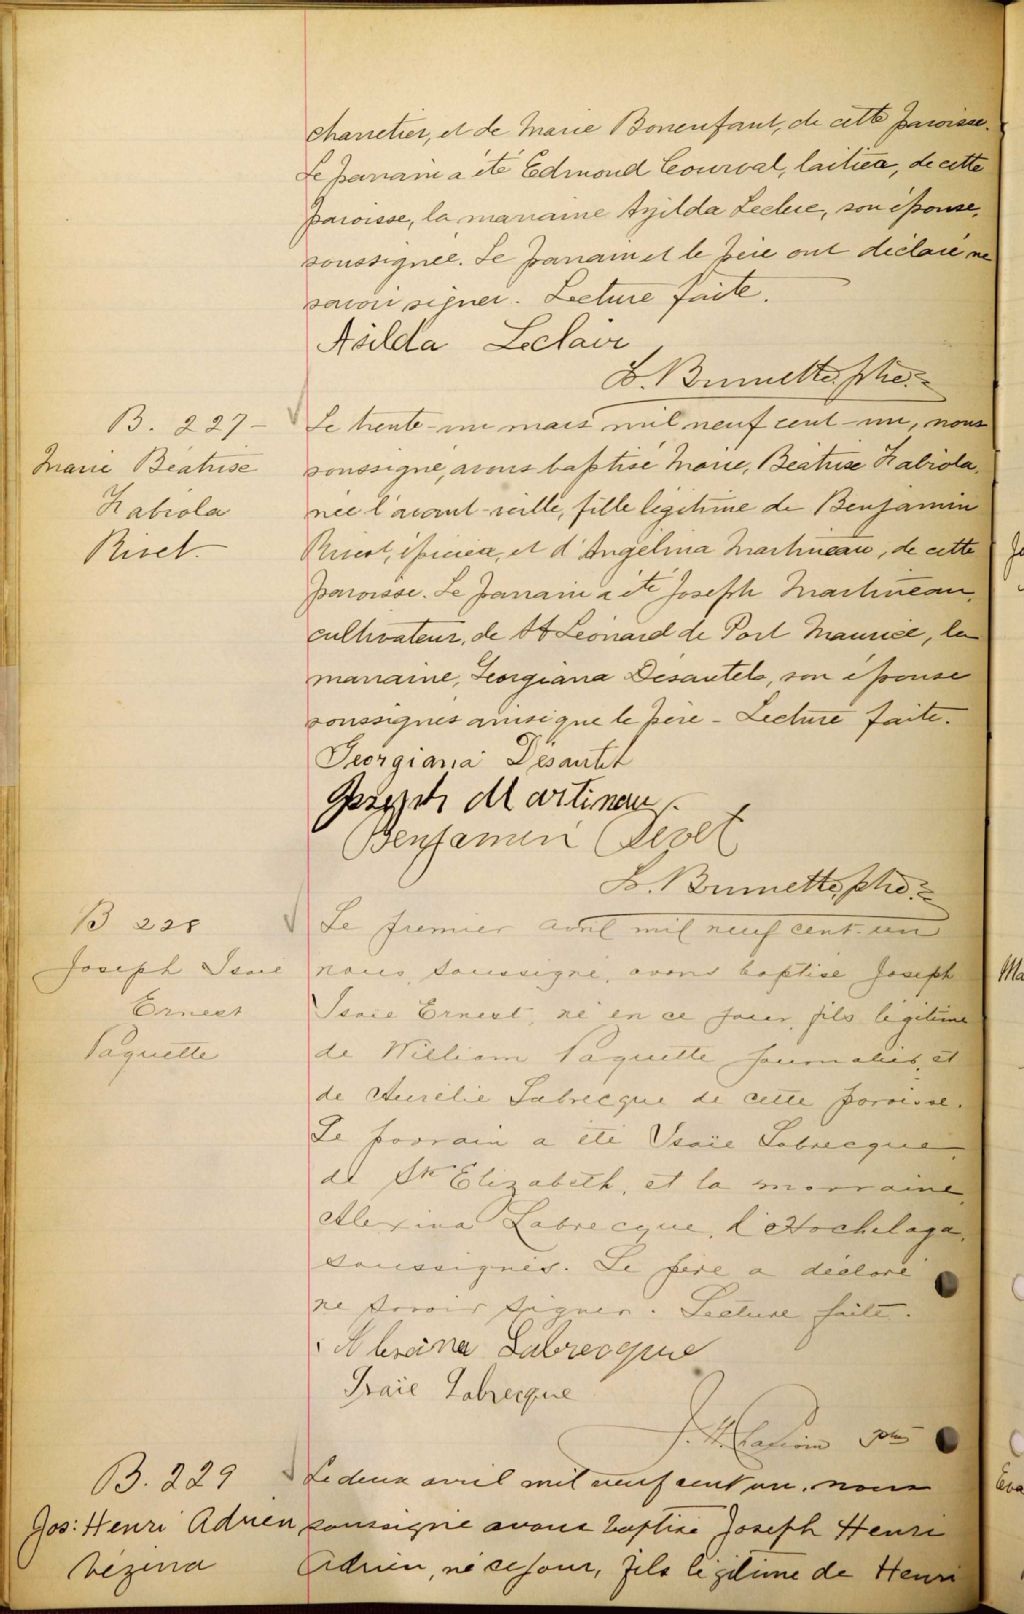 charretier, et de Marie Bonenfant, de cette paroisse.
Le parrain a été Edmond Courval, laitier, de cette
paroisse, la marraine Azilda Leclerc, son épouse,
soussignée. Le parrain et le père ont déclaré ne
savoir signer. Lecture faite.
Asilda Leclair
Brunette, ptre.
B. 227
Marie Béatrise
Fabiola
Rivet.
Le trente-un mars mil neuf cent-un, nous
soussigné, avons baptisé Marie, Béatrise Fabiola,
née l'avant-veille, fille légitime de Benjamin
Rivest, épicier, et d'Angélina Martineau, de cette
paroisse. Le parrain a été Joseph Martineau,
cultivateur, de St Léonard de Port Maurice, la
marraine, Georgiana Désautels, son épouse
soussignés ainsi que le père - Lecture faite.
Georgiana Désautel
Joseph Martinau
Benjamin Rivet
Brunette, ptre.
B 228
Joseph Isaie
Ernest
Paquette
Le premier avril mil neuf cent-un
nous, soussigné, avons baptisé Joseph
Isaïe Ernest, né en ce jour, fils légitime
de William Paquette journalier, et
de Aurélie Labrecque de cette paroisse.
Le parrain a été Isaïe Labrecque,
de Ste Elizabeth, et la marraine,
Alexina Labrecque, d'Hochelaga,
soussignés. Le père a déclaré
ne savoir signer. Lecture faite.
Alexina Labrecque
Isaïe Labrecque
J. H. ptre
B. 229
Jos: Henri Adrien
Vézina
Le deux avril mil neuf cent un, nous
soussigné avons baptisé Joseph Henri
Adrien, né ce jour, fils légitime de Henri
Ma
Eva